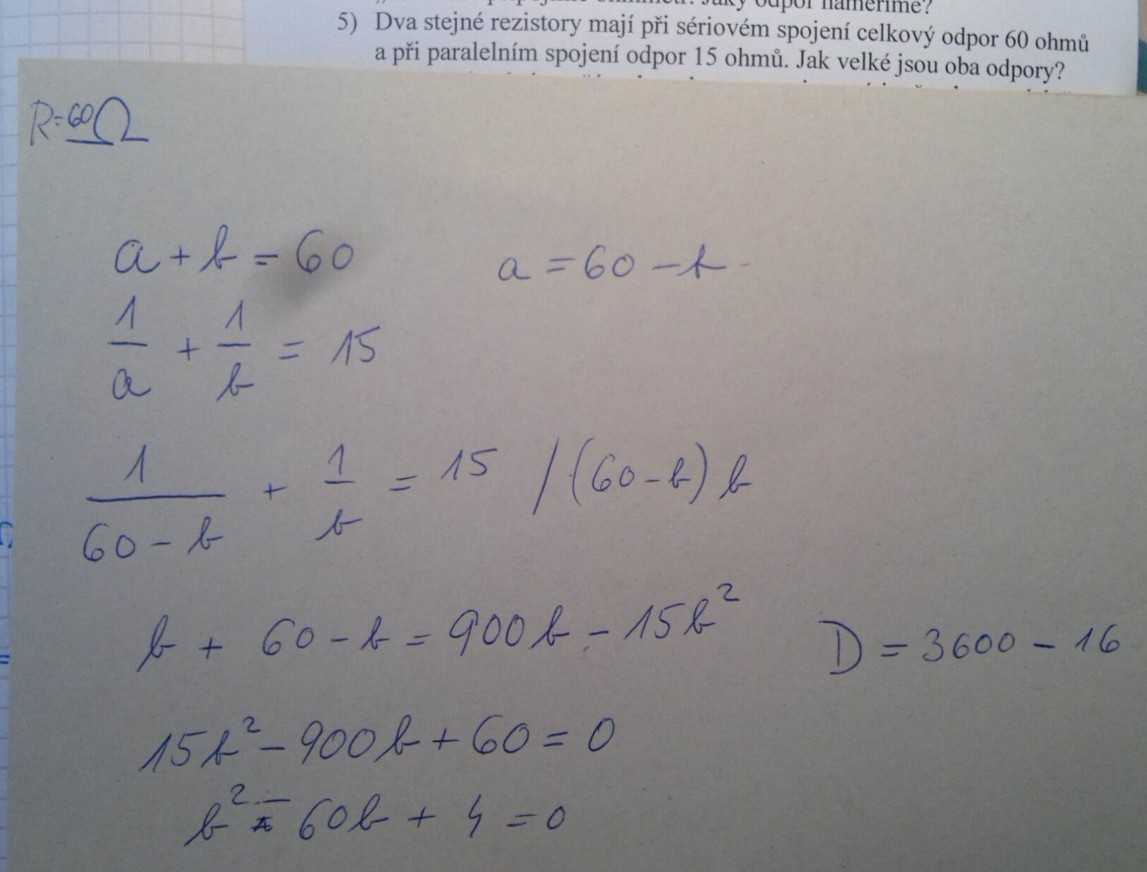 odpor naměříme?
5) Dva stejné rezistory mají při sériovém spojení celkový odpor 60 ohmů
a při paralelním spojení odpor 15 ohmů. Jak velké jsou oba odpory?
R=60Ω
a + b = 60 a = 60 - b
1/a + 1/b = 15
1/(60 - b) + 1/b = 15 /(60-b) b
b + 60 - b = 900b - 15b² D = 3600 - 16
15b² - 900b + 60 = 0
b² - 60b + 4 = 0